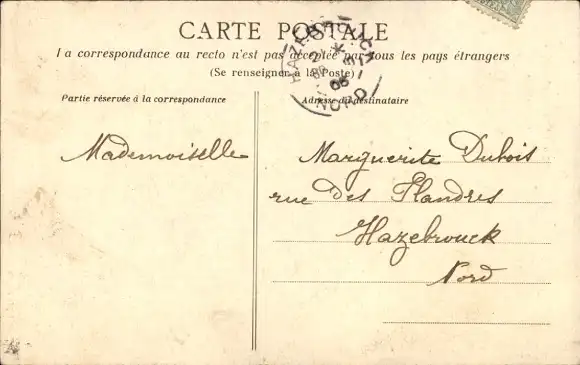 CARTE POSTALE
La correspondance au recto n'est pas acceptée par tous les pays étrangers
(Se renseigner à la Poste)
HAZEBROUCK
NORD
Partie réservée à la correspondance
Adresse du destinataire
Mademoiselle
Marguerite Dubois
rue Des Flandres
Hazebrouck
Nord